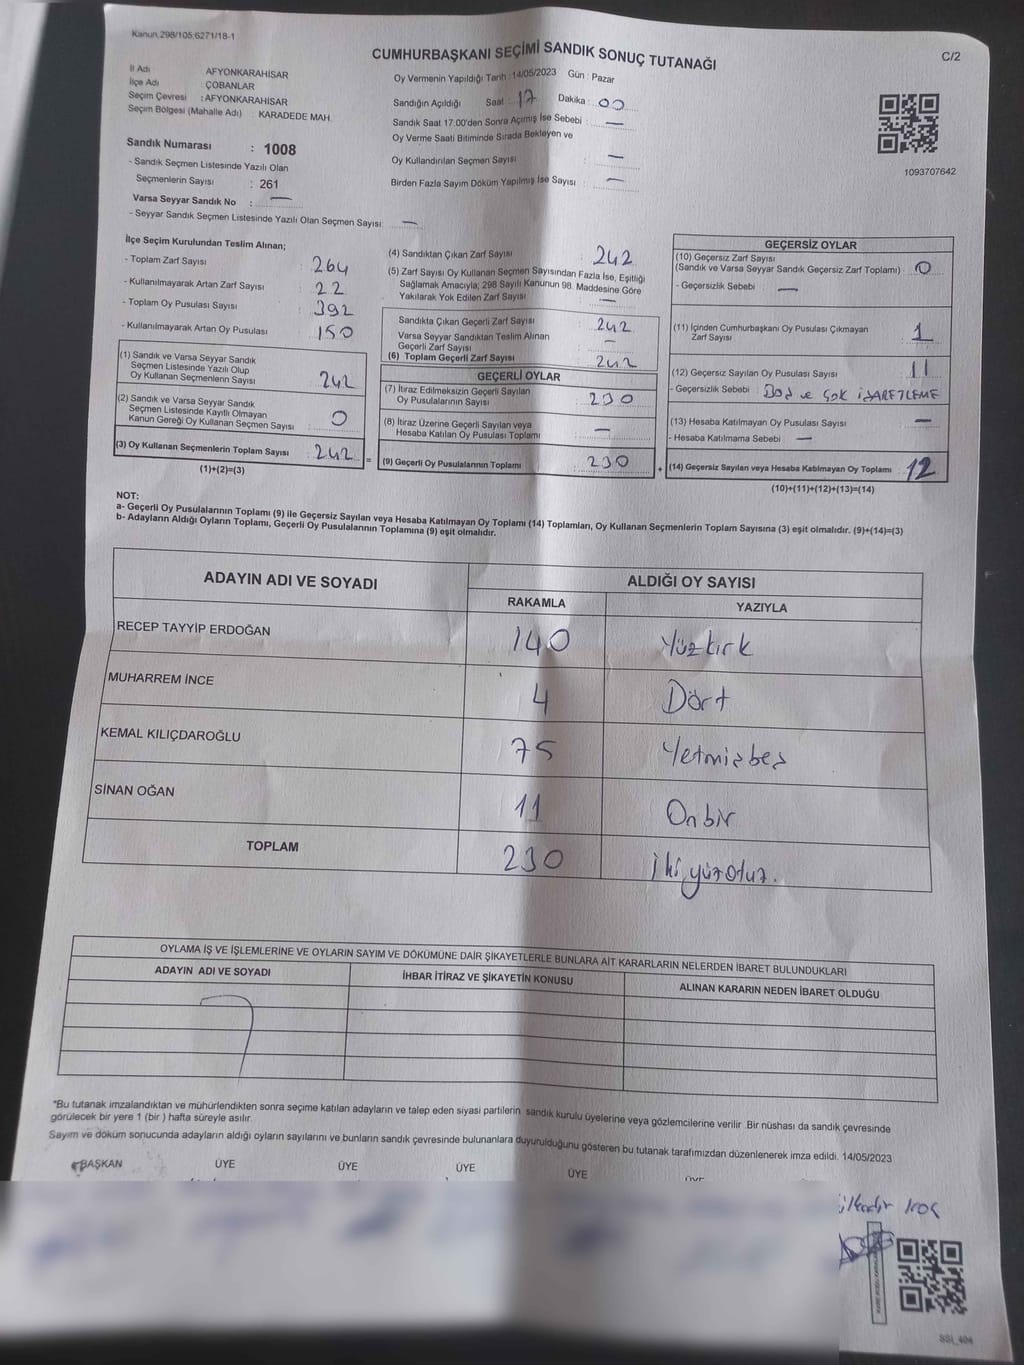 Kanun.298/105:6271/18-1
CUMHURBAŞKANI SEÇİMİ SANDIK SONUÇ TUTANAĞI
C/2
İl Adı AFYONKARAHİSAR
İlçe Adı ÇOBANLAR
Seçim Çevresi : AFYONKARAHİSAR
Seçim Bölgesi (Mahalle Adı) : KARADEDE MAH.
Sandık Numarası : 1008
- Sandık Seçmen Listesinde Yazılı Olan
Seçmenlerin Sayısı : 261
Varsa Seyyar Sandık No : —
- Seyyar Sandık Seçmen Listesinde Yazılı Olan Seçmen Sayısı: —
Oy Vermenin Yapıldığı Tarih :14/05/2023 Gün : Pazar
Sandığın Açıldığı Saat : 17 Dakika : 00
Sandık Saat 17:00'den Sonra Açımış İse Sebebi : —
Oy Verme Saati Bitiminde Sırada Bekleyen ve
Oy Kullandırılan Seçmen Sayısı : —
Birden Fazla Sayım Döküm Yapılmış İse Sayısı : —
1093707642
İlçe Seçim Kurulundan Teslim Alınan;
- Toplam Zarf Sayısı : 264
- Kullanılmayarak Artan Zarf Sayısı : 22
- Toplam Oy Pusulası Sayısı : 392
- Kullanılmayarak Artan Oy Pusulası : 150
(1) Sandık ve Varsa Seyyar Sandık
Seçmen Listesinde Yazılı Olup
Oy Kullanan Seçmenlerin Sayısı : 242
(2) Sandık ve Varsa Seyyar Sandık
Seçmen Listesinde Kayıtlı Olmayan
Kanun Gereği Oy Kullanan Seçmen Sayısı : 0
(3) Oy Kullanan Seçmenlerin Toplam Sayısı : 242 =
(1)+(2)=(3)
(4) Sandıktan Çıkan Zarf Sayısı : 242
(5) Zarf Sayısı Oy Kullanan Seçmen Sayısından Fazla İse, Eşitliği
Sağlamak Amacıyla; 298 Sayılı Kanunun 98. Maddesine Göre
Yakılarak Yok Edilen Zarf Sayısı : —
Sandıkta Çıkan Geçerli Zarf Sayısı : 242
Varsa Seyyar Sandıktan Teslim Alınan
Geçerli Zarf Sayısı : —
(6) Toplam Geçerli Zarf Sayısı : 242
GEÇERLİ OYLAR
(7) İtiraz Edilmeksizin Geçerli Sayılan
Oy Pusulalarının Sayısı : 230
(8) İtiraz Üzerine Geçerli Sayılan veya
Hesaba Katılan Oy Pusulası Toplamı : —
(9) Geçerli Oy Pusulalarının Toplamı : 230 +
GEÇERSİZ OYLAR
(10) Geçersiz Zarf Sayısı
(Sandık ve Varsa Seyyar Sandık Geçersiz Zarf Toplamı) : 0
- Geçersizlik Sebebi : —
(11) İçinden Cumhurbaşkanı Oy Pusulası Çıkmayan
Zarf Sayısı : 1
(12) Geçersiz Sayılan Oy Pusulası Sayısı : 11
- Geçersizlik Sebebi : Boş ve Çok İŞARETLEME
(13) Hesaba Katılmayan Oy Pusulası Sayısı : —
- Hesaba Katılmama Sebebi : —
(14) Geçersiz Sayılan veya Hesaba Katılmayan Oy Toplamı : 12
(10)+(11)+(12)+(13)=(14)
NOT:
a- Geçerli Oy Pusulalarının Toplamı (9) ile Geçersiz Sayılan veya Hesaba Katılmayan Oy Toplamı (14) Toplamları, Oy Kullanan Seçmenlerin Toplam Sayısına (3) eşit olmalıdır. (9)+(14)=(3)
b- Adayların Aldığı Oyların Toplamı, Geçerli Oy Pusulalarının Toplamına (9) eşit olmalıdır.
ADAYIN ADI VE SOYADI ALDIĞI OY SAYISI
RAKAMLA YAZIYLA
RECEP TAYYİP ERDOĞAN 140 Yüzkırk
MUHARREM İNCE 4 Dört
KEMAL KILIÇDAROĞLU 75 Yetmişbeş
SİNAN OĞAN 11 Onbir
TOPLAM 230 İkiyüzotuz.
OYLAMA İŞ VE İŞLEMLERİNE VE OYLARIN SAYIM VE DÖKÜMÜNE DAİR ŞİKAYETLERLE BUNLARA AİT KARARLARIN NELERDEN İBARET BULUNDUKLARI
ADAYIN ADI VE SOYADI İHBAR İTİRAZ VE ŞİKAYETİN KONUSU ALINAN KARARIN NEDEN İBARET OLDUĞU
*Bu tutanak imzalandıktan ve mühürlendikten sonra seçime katılan adayların ve talep eden siyasi partilerin sandık kurulu üyelerine veya gözlemcilerine verilir .Bir nüshası da sandık çevresinde
görülecek bir yere 1 (bir ) hafta süreyle asılır.
Sayım ve döküm sonucunda adayların aldığı oyların sayılarını ve bunların sandık çevresinde bulunanlara duyurulduğunu gösteren bu tutanak tarafımızdan düzenlenerek imza edildi. 14/05/2023
BAŞKAN ÜYE ÜYE ÜYE ÜYE ÜYE